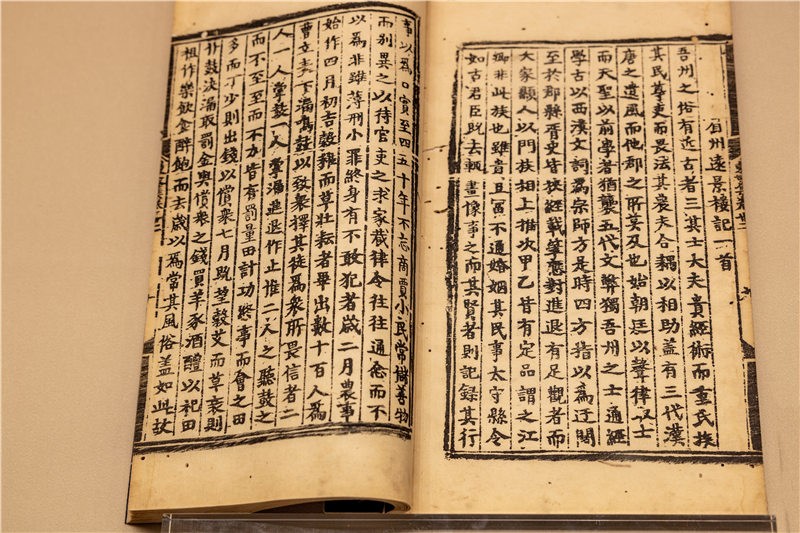 眉州遠景樓記一首
吾州之俗有近古者三其士大夫貴經術而重氏族
其民尊吏而畏法其農夫合耦以相助蓋有三代漢
唐之遺風而他郡之所莫及也始朝廷以聲律取士
而天聖以前學者猶襲五代文弊獨吾州之士通經
學古以西漢文詞爲宗師方是時四方指以爲迂闊
至於郡縣胥史皆挾經載筆應對進退有足觀者而
大家顯人以門族相上推次甲乙皆有定品謂之江
鄉非此族也雖貴且富不通婚姻其民事太守縣令
如古君臣既去輒畫像事之而其賢者則記錄其行
事以爲口實至四五十年不忘商賈小民常儲善物
而別異之以待官吏之求家藏律令往往通念而不
以爲非雖薄刑小罪終身有不敢犯者歲二月農事
始作四月初吉穀稚而草壯耘者畢出數十百人爲
曹立表下漏鳴鼓以致衆擇其徒爲衆所畏信者二
人一人掌鼓一人掌漏進退作止惟二人之聽鼓之
而不至至而不力皆有罰量田計功終事而會之田
多而丁少則出錢以償衆七月既望穀艾而草衰則
仆鼓決漏取罰金與償衆之錢買羊豕酒醴以祀田
祖作樂飲食醉飽而去歲以爲常其風俗蓋如此故